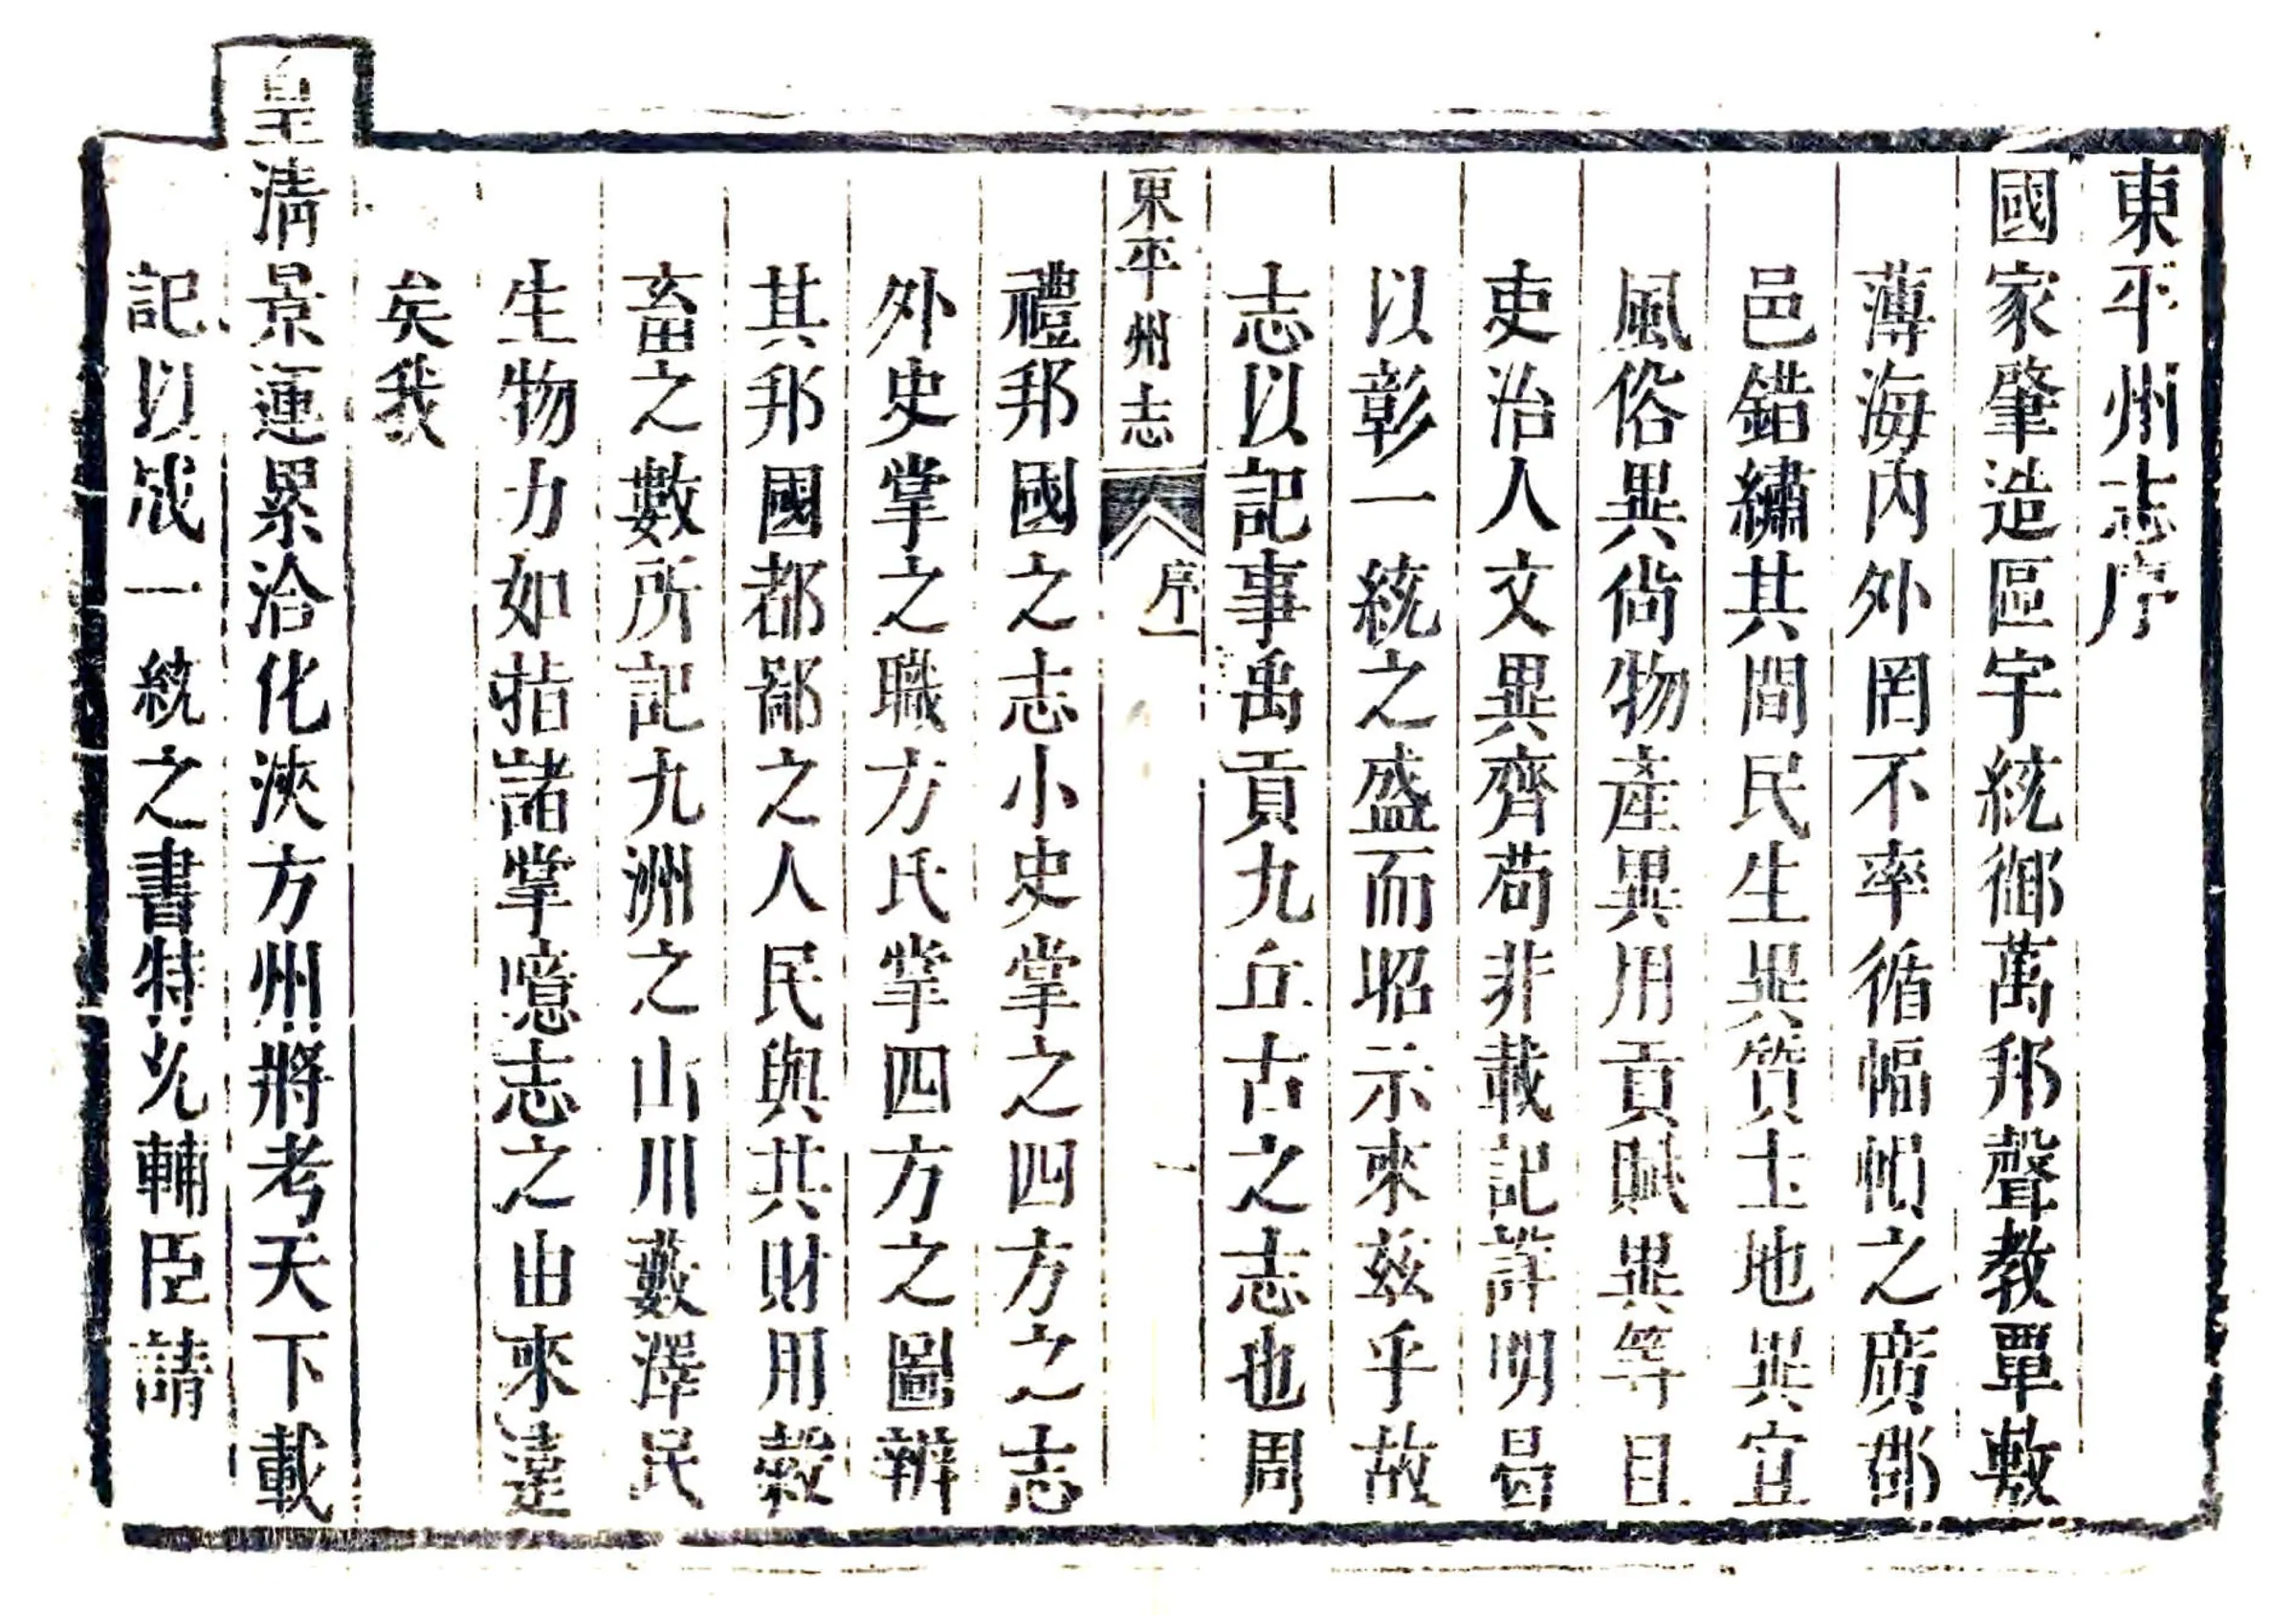 東平州志序
國家肇造區宇統御萬邦聲教覃敷
薄海內外罔不率循幅幀之廣郡
邑錯繡其間民生異質土地異宜
風俗異尙物產異用貢賦異等目
吏治人文異齊苟非載記詳明曷
以彰一統之盛而昭示來茲乎故
志以記事禹貢九丘古之志也周
東平州志 序 一
禮邦國之志小史掌之四方之志
外史掌之職方氏掌四方之圖辨
其邦國都鄙之人民與其財用穀
畜之數所記九洲之山川藪澤民
生物力如指諸掌噫志之由來遠
矣我
皇淸景運累洽化浹方州將考天下載
記以成一統之書特允輔臣請